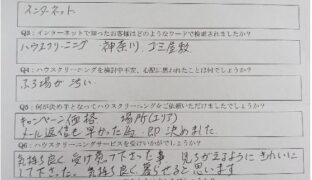 インターネット
Q3：インターネットで知ったお客様はどのようなワードで検索されましたか？
ハウスクリーニング 神奈川 ゴミ屋敷
Q4：ハウスクリーニングを検討中不安、心配に思われたことは何でしょうか？
ふろ場が汚い
Q5：何が決め手となってハウスクリーニングをご依頼いただけましたでしょうか？
キャンペーン価格 場所(エリア)
メール返信も早かった為 即決めました
Q6：ハウスクリーニングサービスを受けいかがでしたでしょうか？
気持ち良く受け答え下さった事 見ちがえるようにきれいに
して下さった。気持ち良く暮らせると思います